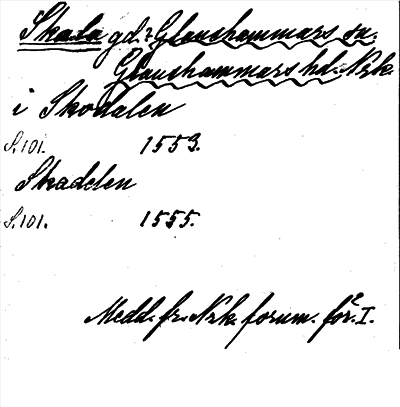 Skala gd. i Glanshammars sn.
Glanshammars hd. Nrk.
i Skodalen
S. 101. 1553.
Skadelen
S. 101. 1555.
Medd. fr. Nrk. fornm. för. I.